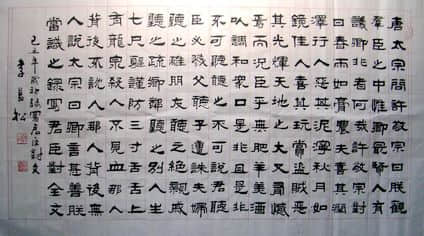 唐太宗問許敬宗曰朕觀
羣臣之中惟卿最賢人有
議卿非者何哉敬宗對
曰春雨如膏農夫喜其潤
澤行人惡其泥濘秋月如
鏡佳人喜其玩賞盜賊惡
其光輝天地之大又猶憾
焉而況臣乎無肥羊美酒
以調和眾口是且是非
臣必父聽子遭誅夫婦
聽之離朋友聽之絕親戚
聽之疏鄉鄰聽之別人生
七尺謹防
有龍泉殺人不見血那人
背後不說人那人背後無
人說太宗曰卿言甚善朕
當識之錄寫君臣對全文
己丑年寫君臣對文
松